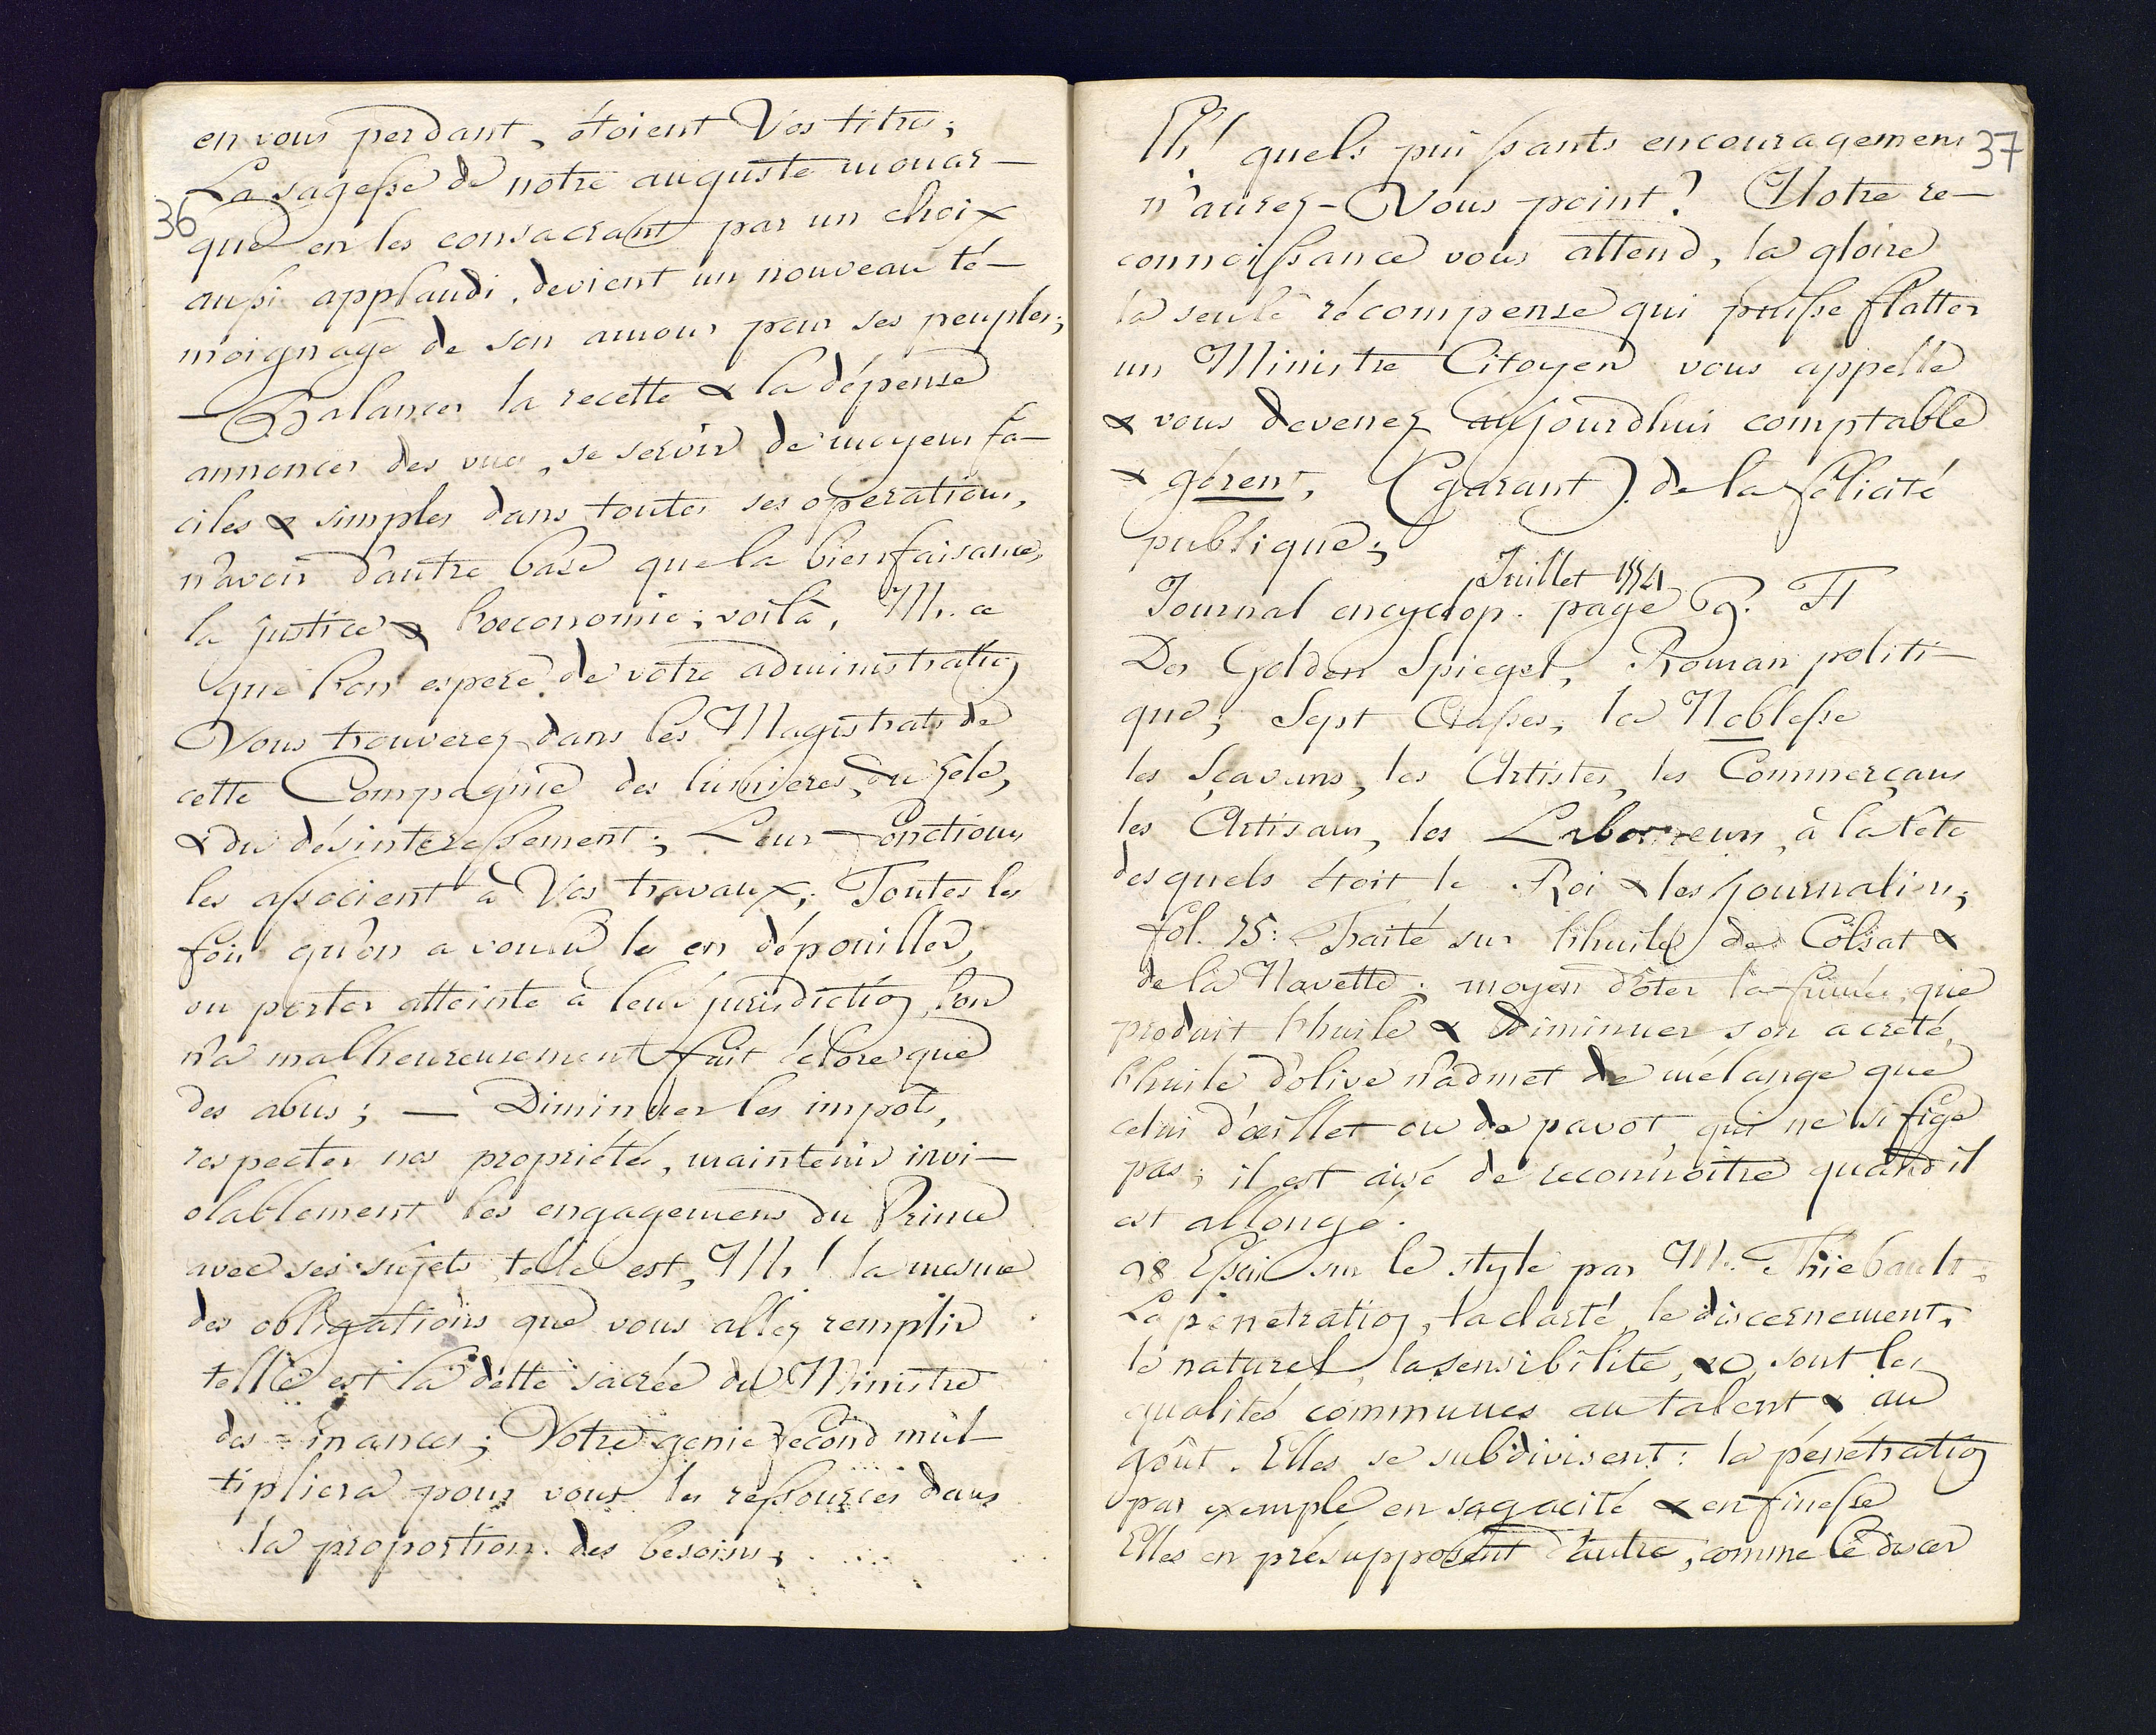 en vous perdant, étoient Vos titres;
La sagesse de notre auguste monar-
36
que en les consacrant par un choix
aussi applaudi, devient un nouveau té-
moignage de son amour pour ses peuples;
— Balancer la recette & la dépense
annoncer des vues, se servir de moyens fa-
ciles & simples dans toutes ses operations,
n'avoir d'autre base que la bienfaisance,
la justice & l'oeconomie; voilà, M. ce
que l'on espere de votre administration
Vous trouverez dans les Magistrats de
cette Compagnie des lumieres, du zèle,
& du désinteressement; Leur fonctions
les associent à Vos travaux; Toutes les
fois qu'on a voulu les en dépouiller,
ou porter atteinte à leur jurisdiction, l'on
n'a malheureusement fait éclore que
des abus; — Diminuer les impots,
respecter nos propriétés, maintenir invi-
olablement les engagemens du Prince
avec ses sujets, telle est, M! la mesure
des obligations que vous allez remplir
telle est la dette sacrée du Ministre
des Finances; Votre genie fecond mul-
tipliera pour vous les ressources dans
la proportion des besoins;
37
M! quels puissants encouragemens
n'aurez-Vous point? Notre re-
connoissance vous attend, la gloire
la seule récompense qui puisse flatter
un Ministre Citoyen vous appelle
& vous devenez aujourdhui comptable
& gérent, (garant) de la félicité
publique;
Juillet 1774
Journal encyclop. page 69. Fl
Der Golden Spiegel, Roman politi-
que; Sept Classes; la Noblesse
les Sçavans, les Artistes, les Commerçans
les Artisans, les Laboureurs, à la tête
desquels étoit le Roi & les journaliers;
fol. 75: Traité sur l'huile de Colsat &
de la Navette; moyen d'ôter la fumée, que
produit l'huile & diminuer son acreté,
l'huile d'olive n'admet de mélange que
celui d'oeillet ou de pavot, qui ne se fige
pas; il est aisé de reconnoitre quand il
est allongé.
98 Essai sur le style par M. Thiebault;
La pénetration, la clarté, le discernement,
le naturel, la sensibilité, &c, sont les
qualités communes au talent & au
goût. Elles se subdivisent: la pénétration
par exemple en sagacité & en finesse
Elles en présupposent d'autre, comme le discer